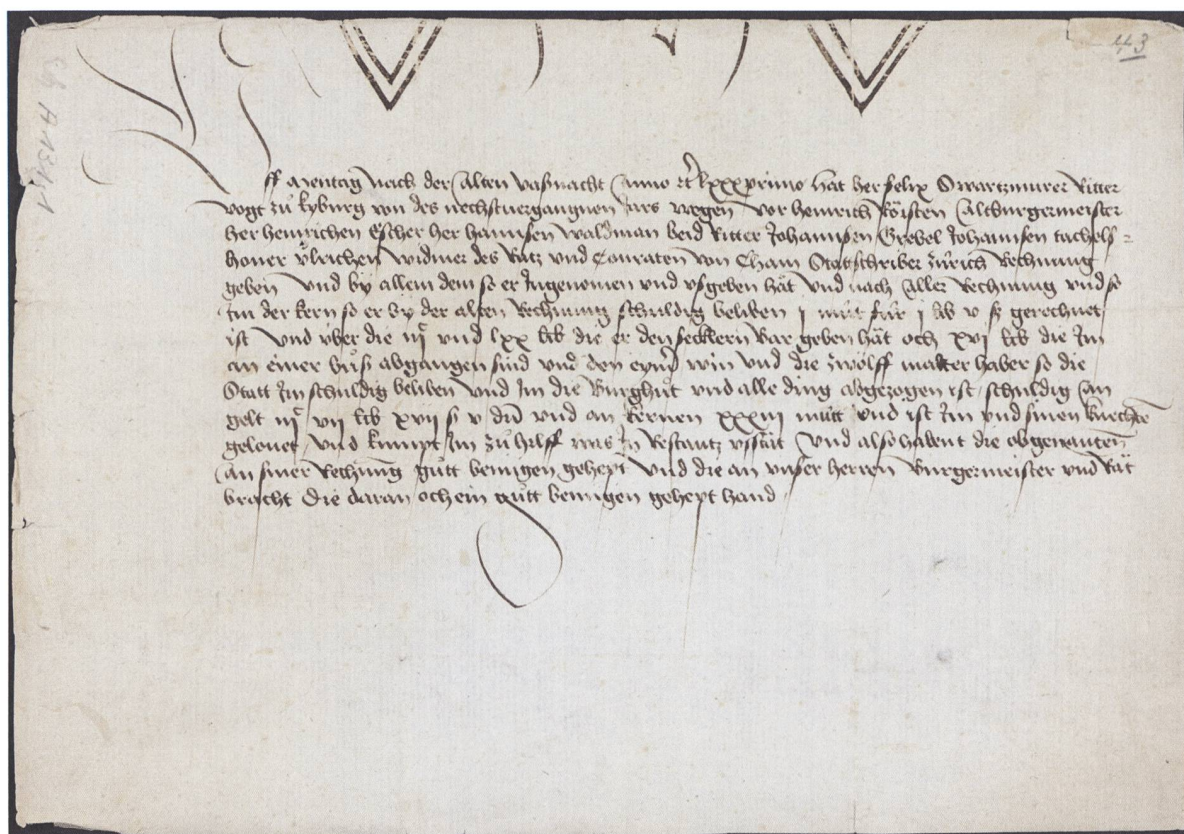 43
Uff mentag nach der alten vaßnacht Anno etc lxxxprimo hat her felix Swartzmurer Ritter
vogt zů kyburg von des nechstvergangnen Jars wegen vor heinrich Röisten altburgermeister
her heinrichen Escher her hannsen waldman beid Ritter Johannsen Grebel Johannsen tachels-
houer ůlrichen widmer des Ratz und Conraten von Cham Stattschriber zürich Rechnung
geben und by allem dem so er Ingenomen und vsgeben hăt und nach aller Rechnung und so
Im der kern so er by der alten Rechnung schuldig beliben j mütt für j lib v ß gerechnet
ist und über die und lxx lib die er den secklern bar geben hăt och xvj lib die Im
an einer bůß abgangen sind und den win und die zwölff malter haber so die
Statt Im schuldig beliben und Im die Burghůt und alle ding abgezogen ist schuldig an
gelt vij lib xvij ß v dn und an kernen mütt und ist Im und sinen knechten
gelonet und kumpt Im zů hilff was In Restantz vsstăt und also habent die obgenanten
an siner Rechnung gůtt benůgen gehept und die an unser herren Burgermeister und Răt
brăcht die daran och ein gůtt benůgen gehept hand